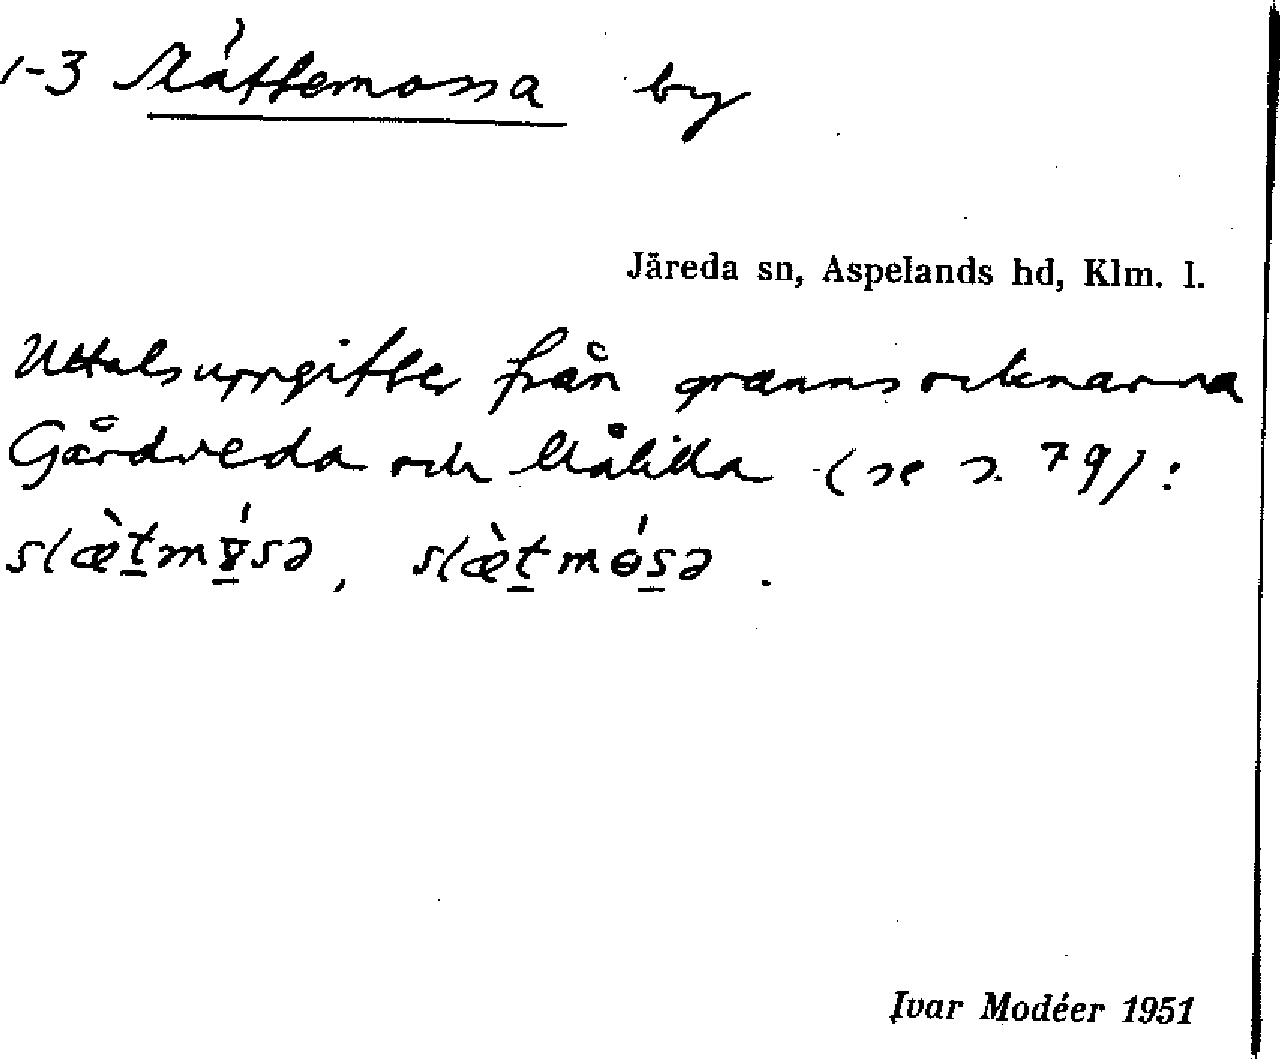 1-3 Slättemossa by
Järeda sn, Aspelands hd, Klm. l.
Uttalsuppgifter från grannsocknarna
Gårdveda och Målilla (se s. 79):
slæ̀t̲mɤ̲́sə, slæ̀t̲mɵ́s̲ə.
Ivar Modéer 1951